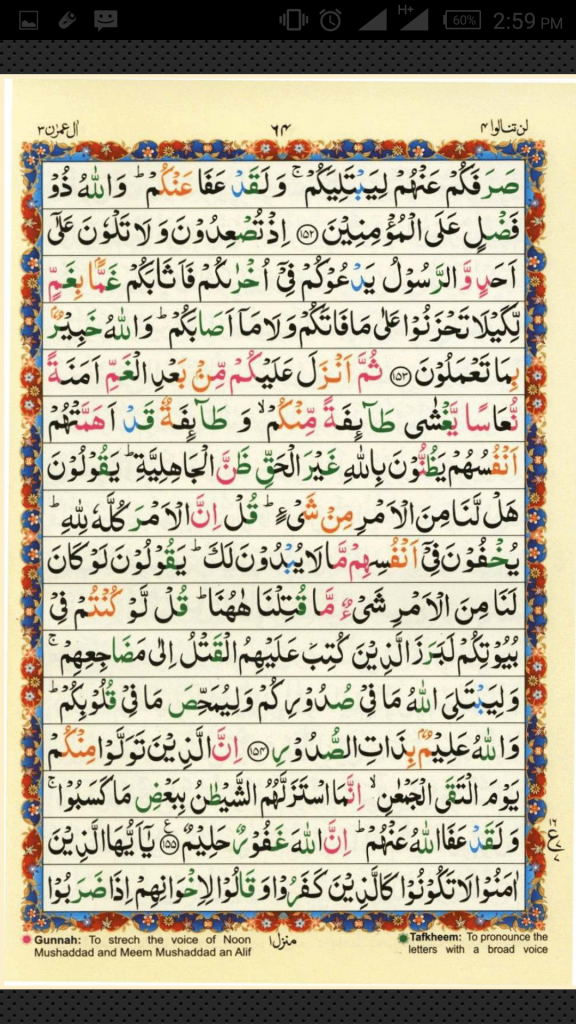 H+
60%
2:59 PM
لن تنالوا ۴
۶۴
اٰل عمرٰن ۳
صَرَفَكُمْ عَنْهُمْ لِيَبْتَلِيَكُمْ ۚ وَ لَقَدْ عَفَا عَنْكُمْ ؕ وَاللّٰهُ ذُوْ
فَضْلٍ عَلَى الْمُؤْمِنِيْنَ ﴿۱۵۲﴾ اِذْ تُصْعِدُوْنَ وَ لَا تَلْوٗنَ عَلٰۤى
اَحَدٍ وَّ الرَّسُوْلُ يَدْعُوْكُمْ فِىْۤ اُخْرٰىكُمْ فَاَثَابَكُمْ غَمًّۢا بِغَمٍّ
لِّكَيْلَا تَحْزَنُوْا عَلٰى مَا فَاتَكُمْ وَ لَا مَاۤ اَصَابَكُمْ ؕ وَاللّٰهُ خَبِيْرٌۢ
بِمَا تَعْمَلُوْنَ ﴿۱۵۳﴾ ثُمَّ اَنْزَلَ عَلَيْكُمْ مِّنْۢ بَعْدِ الْغَمِّ اَمَنَةً
نُّعَاسًا يَّغْشٰى طَآٮِٕفَةً مِّنْكُمْ ۙ وَ طَآٮِٕفَةٌ قَدْ اَهَمَّتْهُمْ
اَنْفُسُهُمْ يَظُنُّوْنَ بِاللّٰهِ غَيْرَ الْحَقِّ ظَنَّ الْجَاهِلِيَّةِ ؕ يَقُوْلُوْنَ
هَلْ لَّنَا مِنَ الْاَمْرِ مِنْ شَىْءٍ ؕ قُلْ اِنَّ الْاَمْرَ كُلَّهٗ لِلّٰهِ ؕ
يُخْفُوْنَ فِىْۤ اَنْفُسِهِمْ مَّا لَا يُبْدُوْنَ لَكَ ؕ يَقُوْلُوْنَ لَوْ كَانَ
لَنَا مِنَ الْاَمْرِ شَىْءٌ مَّا قُتِلْنَا هٰهُنَا ؕ قُلْ لَّوْ كُنْتُمْ فِىْ
بُيُوْتِكُمْ لَبَرَزَ الَّذِيْنَ كُتِبَ عَلَيْهِمُ الْقَتْلُ اِلٰى مَضَاجِعِهِمْ ۚ
وَ لِيَبْتَلِىَ اللّٰهُ مَا فِىْ صُدُوْرِكُمْ وَ لِيُمَحِّصَ مَا فِىْ قُلُوْبِكُمْ ؕ
وَاللّٰهُ عَلِيْمٌۢ بِذَاتِ الصُّدُوْرِ ﴿۱۵۴﴾ اِنَّ الَّذِيْنَ تَوَلَّوْا مِنْكُمْ
يَوْمَ الْتَقَى الْجَمْعٰنِ ۙ اِنَّمَا اسْتَزَلَّهُمُ الشَّيْطٰنُ بِبَعْضِ مَا كَسَبُوْا ۚ
وَ لَقَدْ عَفَا اللّٰهُ عَنْهُمْ ؕ اِنَّ اللّٰهَ غَفُوْرٌ حَلِيْمٌ ﴿۱۵۵﴾ يٰۤاَيُّهَا الَّذِيْنَ
اٰمَنُوْا لَا تَكُوْنُوْا كَالَّذِيْنَ كَفَرُوْا وَ قَالُوْا لِاِخْوَانِهِمْ اِذَا ضَرَبُوْا
ع
۷
منزل ۱
Gunnah: To strech the voice of Noon
Mushaddad and Meem Mushaddad an Alif
Tafkheem: To pronounce the
letters with a broad voice